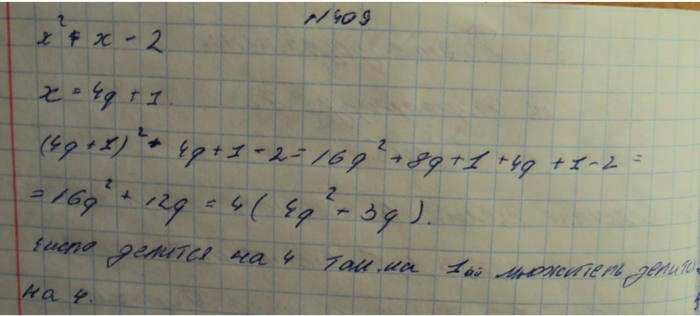 №409
x² + x - 2
x = 4q + 1.
(4q+1)² + 4q+1-2 = 16q² + 8q+1 +4q +1-2 =
= 16q² + 12q = 4( 4q² - 3q).
число делится на 4 1ый множитель делится
на 4.